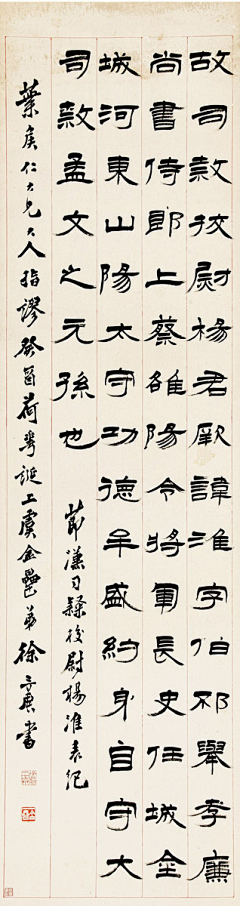 故司隸校尉楊君厥諱淮字伯邳舉孝廉
尚書侍郎上蔡雒陽令將軍長史任城金
城河東山陽太守功德牟盛約身自守大
司隸孟文之元孫也 節漢司隸校尉楊淮表紀
葉矦仁大兄大人指謬癸酉荷華誕上虞金罍弟徐三庚書